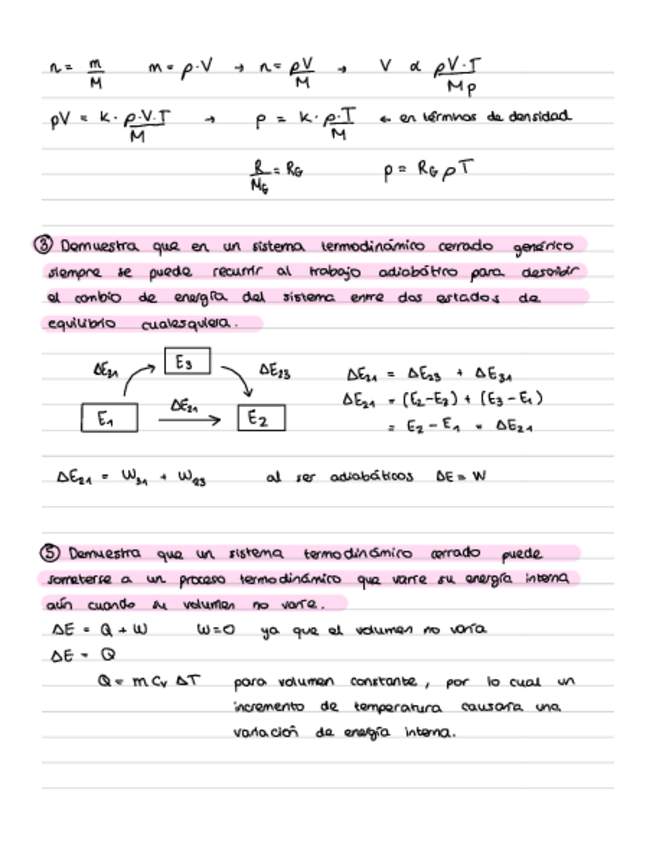 n = m/M    m = ρ·V → n = ρV/M → V α ρV·T/Mp
pV = K · ρ·V·T/M → p = K · ρ·T/M ← en términos de densidad
R/M_G = R_G    p = R_G ρ T
③ Demuestra que en un sistema termodinámico cerrado genérico
siempre se puede recurrir al trabajo adiabático para describir
el cambio de energía del sistema entre dos estados de
equilibrio cualesquiera.
ΔE₃₁    E₃    ΔE₂₃
E₁    ΔE₂₁    E₂
ΔE₂₁ = ΔE₂₃ + ΔE₃₁
ΔE₂₁ = (E₂-E₃) + (E₃-E₁)
= E₂ - E₁ = ΔE₂₁
ΔE₂₁ = W₃₁ + W₂₃    al ser adiabáticos ΔE = W
⑤ Demuestra que un sistema termodinámico cerrado puede
someterse a un proceso termodinámico que varíe su energía interna
aún cuando su volumen no varíe.
ΔE = Q + W    W=0 ya que el volumen no varía
ΔE = Q
Q = m Cv ΔT    para volumen constante, por lo cual un
incremento de temperatura causaría una
variación de energía interna.